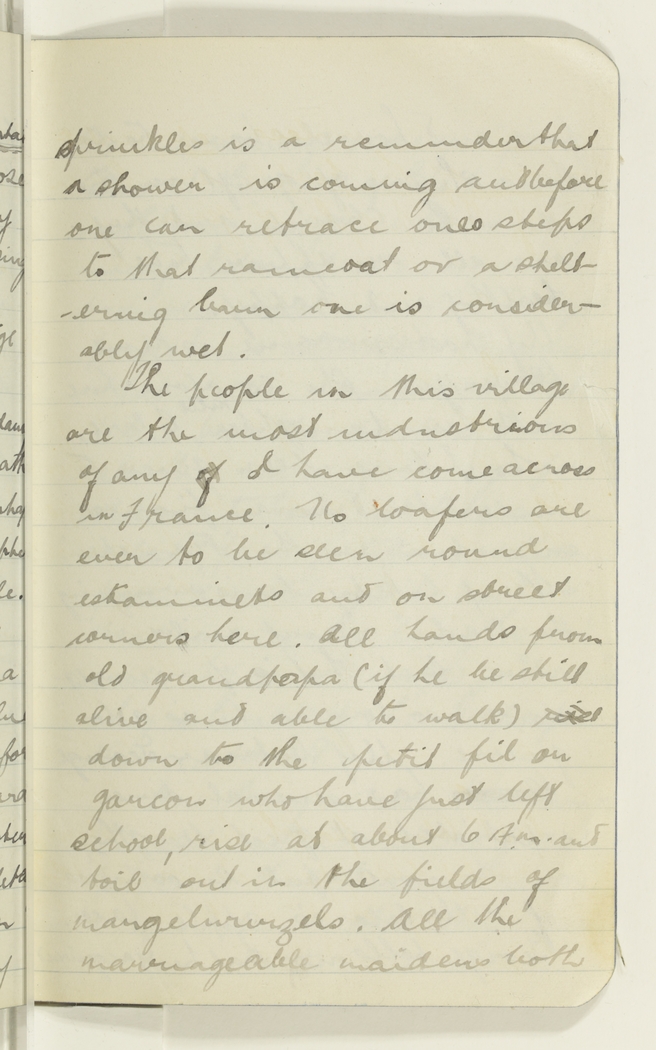 sprinkles is a reminder that
a shower is coming and before
one can retrace ones steps
to that raincoat or a shelt-
-ering barn one is consider-
ably wet.
The people in this village
are the most industrious
of any of I have come across
in France. No loafers are
ever to be seen round
estaminets and on street
corners here. All hands from
old grandpapa (if he be still
alive and able to walk) rise
down to the petit fil on
garcon who have just left
school, rise at about 6 A.m. and
toil out in the fields of
mangelwurzels. All the
marriageable maidens both